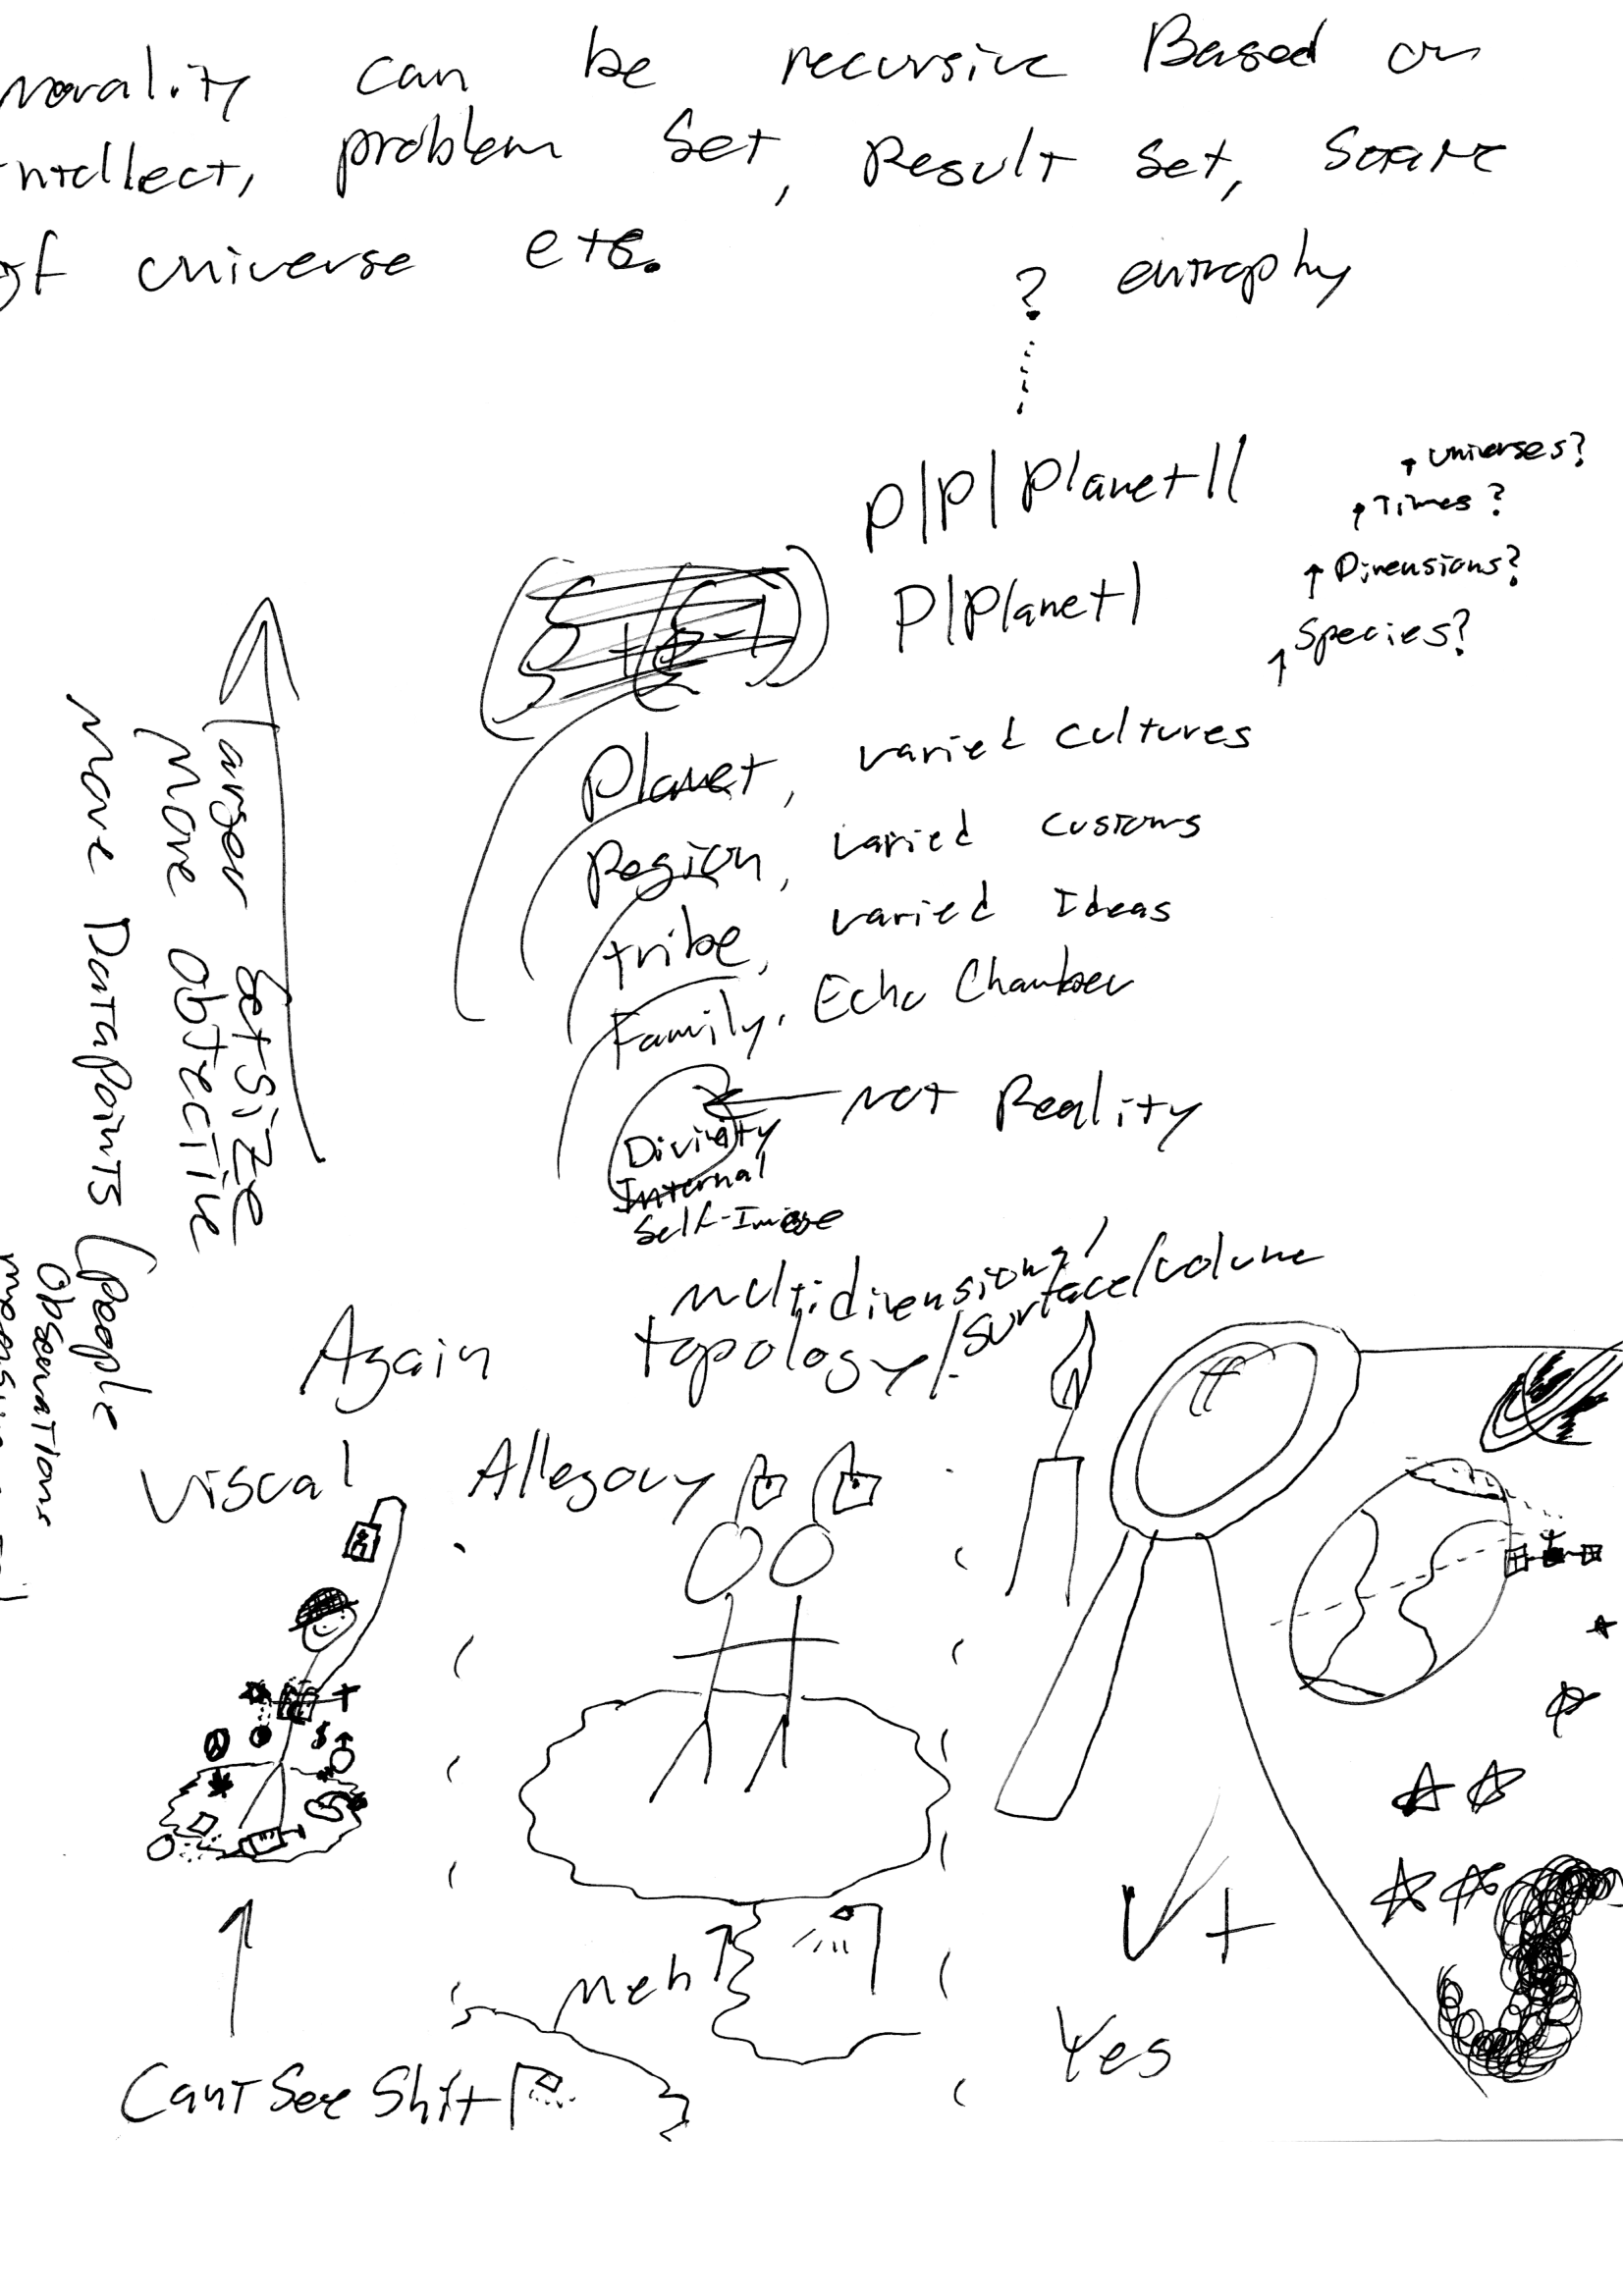 morality can be recursive Based on
intellect, problem Set, Result Set, State
of universe etc.
? entrophy
P|P|Planet||
↑ universes?
↑ Times?
P|Planet|
↑ Dimensions?
↑ Species?
Planet, varied cultures
Region, varied cusioms
tribe, varied Ideas
Family, Echo Chamber
← Not Reality
Divinity
Internal
Self-Image
larger Set Size
More Objective
More Datapoints (people
Observations
multidimensional
topology/surface/volume
Again
Viscal Allegory
Meh
+
Yes
Cant See Shit